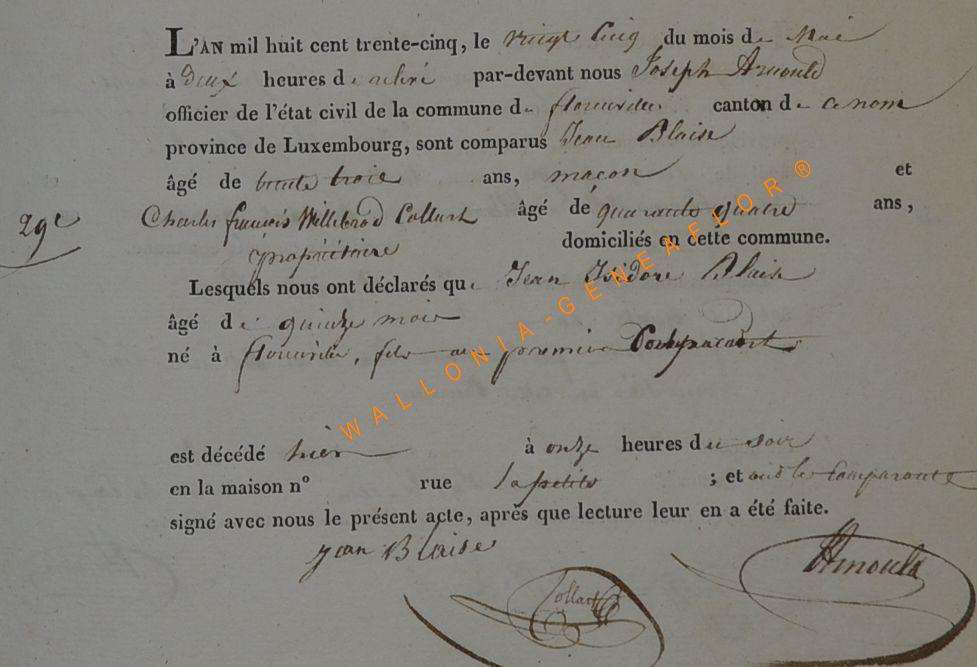 L'AN mil huit cent trente-cinq, le vingt cinq du mois de Mai
à deux heures de relevé par-devant nous Joseph Arnould
officier de l'état civil de la commune de florenville canton de ce nom
province de Luxembourg, sont comparus Jean Blaise
âgé de trente trois ans, maçon et
29e Charles françois Willebrod Collart âgé de quarante quatre ans,
propriétaire domiciliés en cette commune.
Lesquels nous ont déclarés que Jean Isidore Blaise
âgé de quinze mois
né à florenville, fils au premier Comparant
est décédé hier à onze heures du soir
en la maison nº rue la petite ; et les Comparants
signé avec nous le présent acte, après que lecture leur en a été faite.
jean Blaise
Collart
Arnould
WALLONIA-GENEAFLOR®